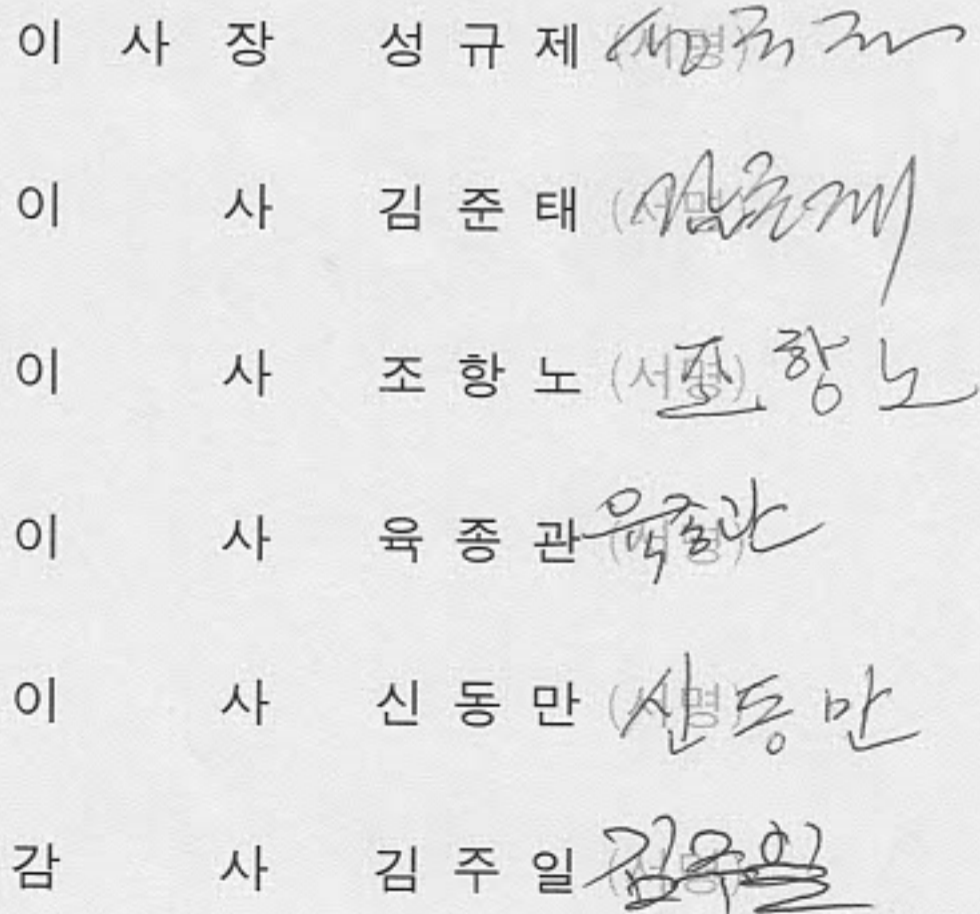 이 사 장 성 규 제 (서명) 성규제
이 사 김 준 태 (서명) 김준태
이 사 조 항 노 (서명) 조항노
이 사 육 종 관 (서명) 육종관
이 사 신 동 만 (서명) 신동만
감 사 김 주 일 (서명) 김주일